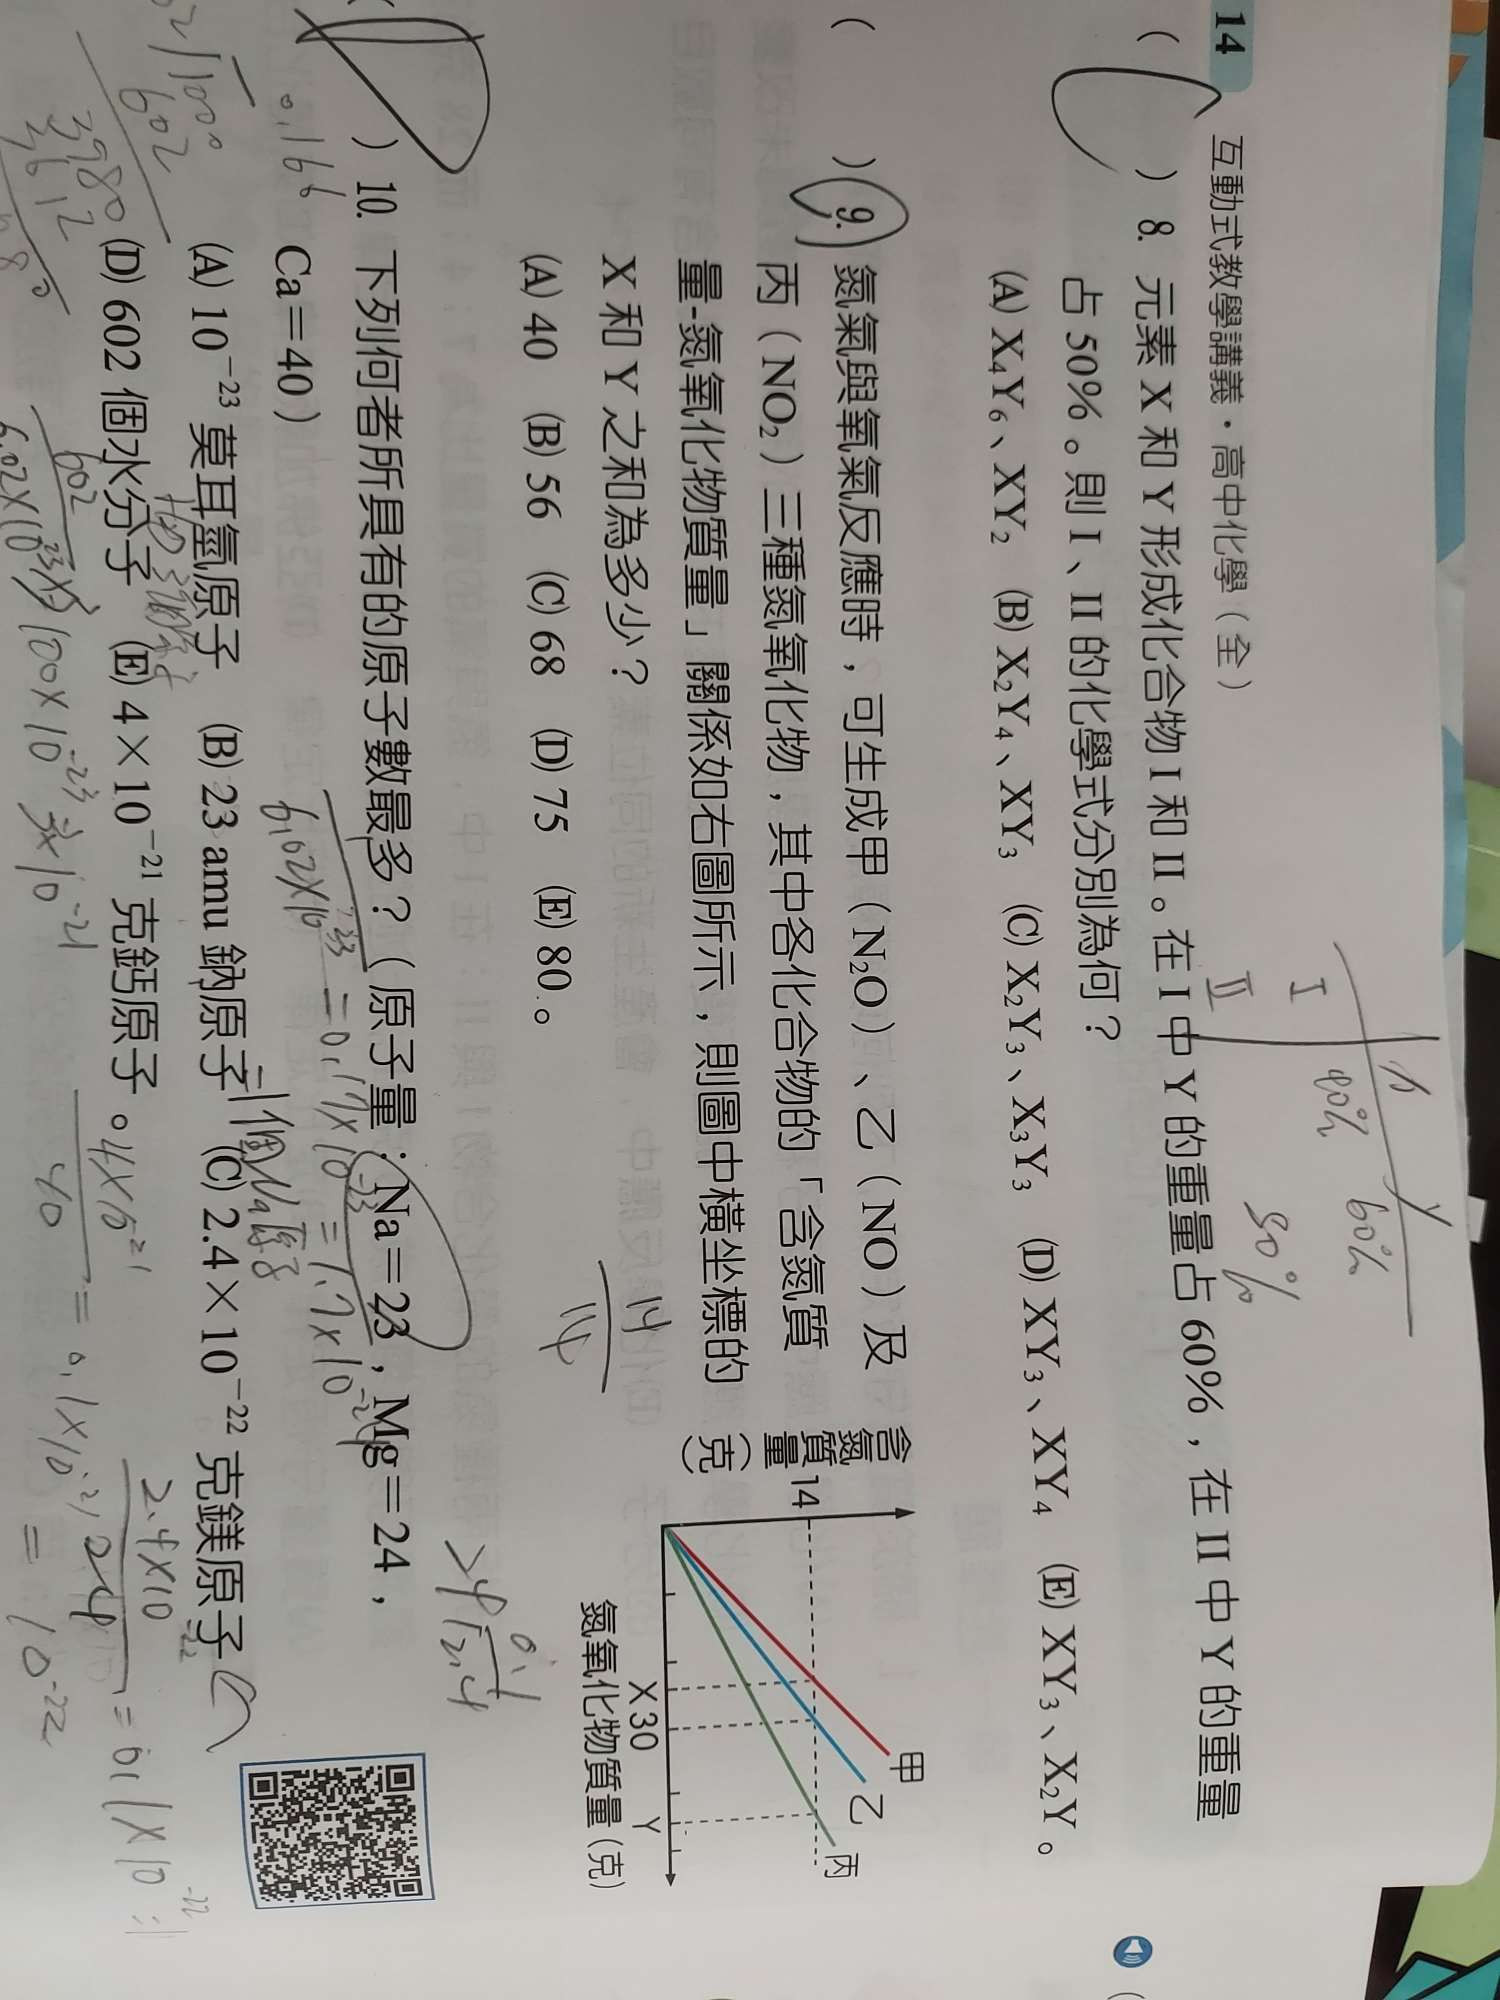 14 互動式教學講義・高中化學（全）
（ ）8. 元素 X 和 Y 形成化合物 I 和 II。在 I 中 Y 的重量占 60%，在 II 中 Y 的重量
占 50%。則 I、II 的化學式分別為何？
(A) X₄Y₆、XY₂ (B) X₂Y₄、XY₃ (C) X₂Y₃、X₃Y₃ (D) XY₃、XY₄ (E) XY₃、X₂Y。
X Y
I 40% 60%
II 50%
（ ）9. 氮氣與氧氣反應時，可生成甲（N₂O）、乙（NO）及
丙（NO₂）三種氮氧化物，其中各化合物的「含氮質
量-氮氧化物質量」關係如右圖所示，則圖中橫坐標的
X 和 Y 之和為多少？
(A) 40 (B) 56 (C) 68 (D) 75 (E) 80。
含氮質量（克）
14
甲
乙
丙
X 30 Y
氮氧化物質量（克）
14
（ ）10. 下列何者所具有的原子數最多？（原子量：Na＝23，Mg＝24，
Ca＝40）
(A) 10⁻²³ 莫耳氫原子 (B) 23 amu 鈉原子 (C) 2.4×10⁻²² 克鎂原子
(D) 602 個水分子 (E) 4×10⁻²¹ 克鈣原子。
0.166
1000
602
3980
3612
602
6.02×10²³
1個Na原子
4×10⁻²¹
40
2.4×10⁻²²
24
0.1
24 2.4
＝10⁻²²